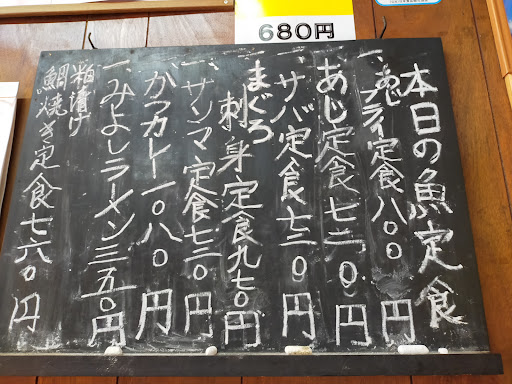 680円
本日の魚定食
一、あじフライ定食 八〇〇円
あじ定食 七二〇円
一、サバ定食 七三〇円
まぐろ刺身定食 九七〇円
一、サンマ定食 七三〇円
一、かつカレー 一〇八〇円
一、みよしラーメン 三五〇円
粕漬け
鯛焼き定食 七六〇円